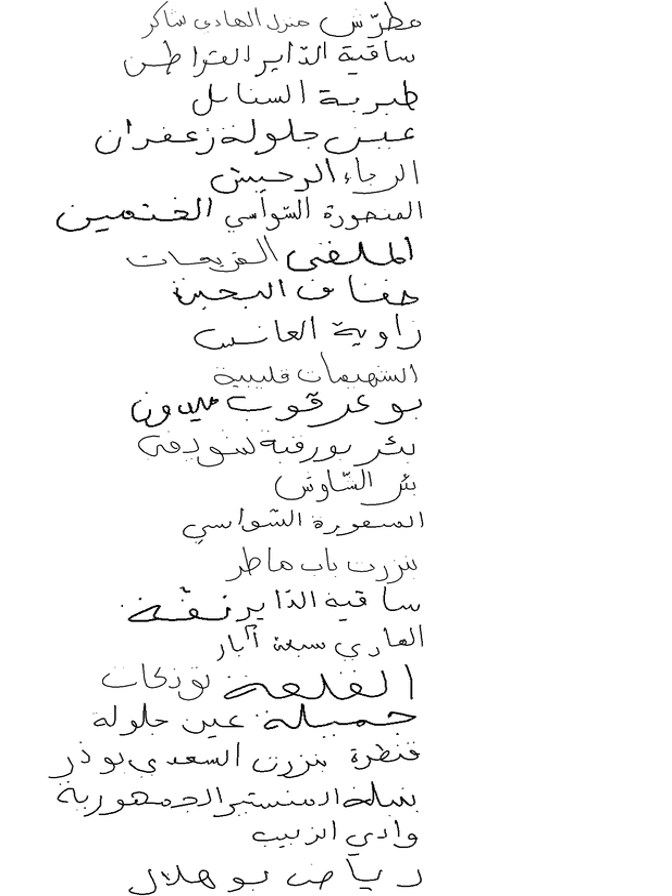 مطرّش منزل الهادي شاكر
ساقية الدّاير القراطن
طبربة السنابل
عين جلولة زعفران
الرجاء الرحيش
المنصورة الشّواشي الغنمين
الملقى الفريحات
حفناوي البحيرة
زاوية العانس
الشهيمات قليبية
بوعرقوب ميدون
بئر بورقبة شوشفي
بئر الشّاوش
المنصورة الشّواشي
بنزرت باب ماطر
ساقية الدّاير نقّة
الهادي سبعة آبار
القلعة توذكات
جميلة عين جلولة
قنطرة بنزرت السعدي بوذر
بنبلة المنستير الجمهورية
وادي الزبيب
رياض بوهلال